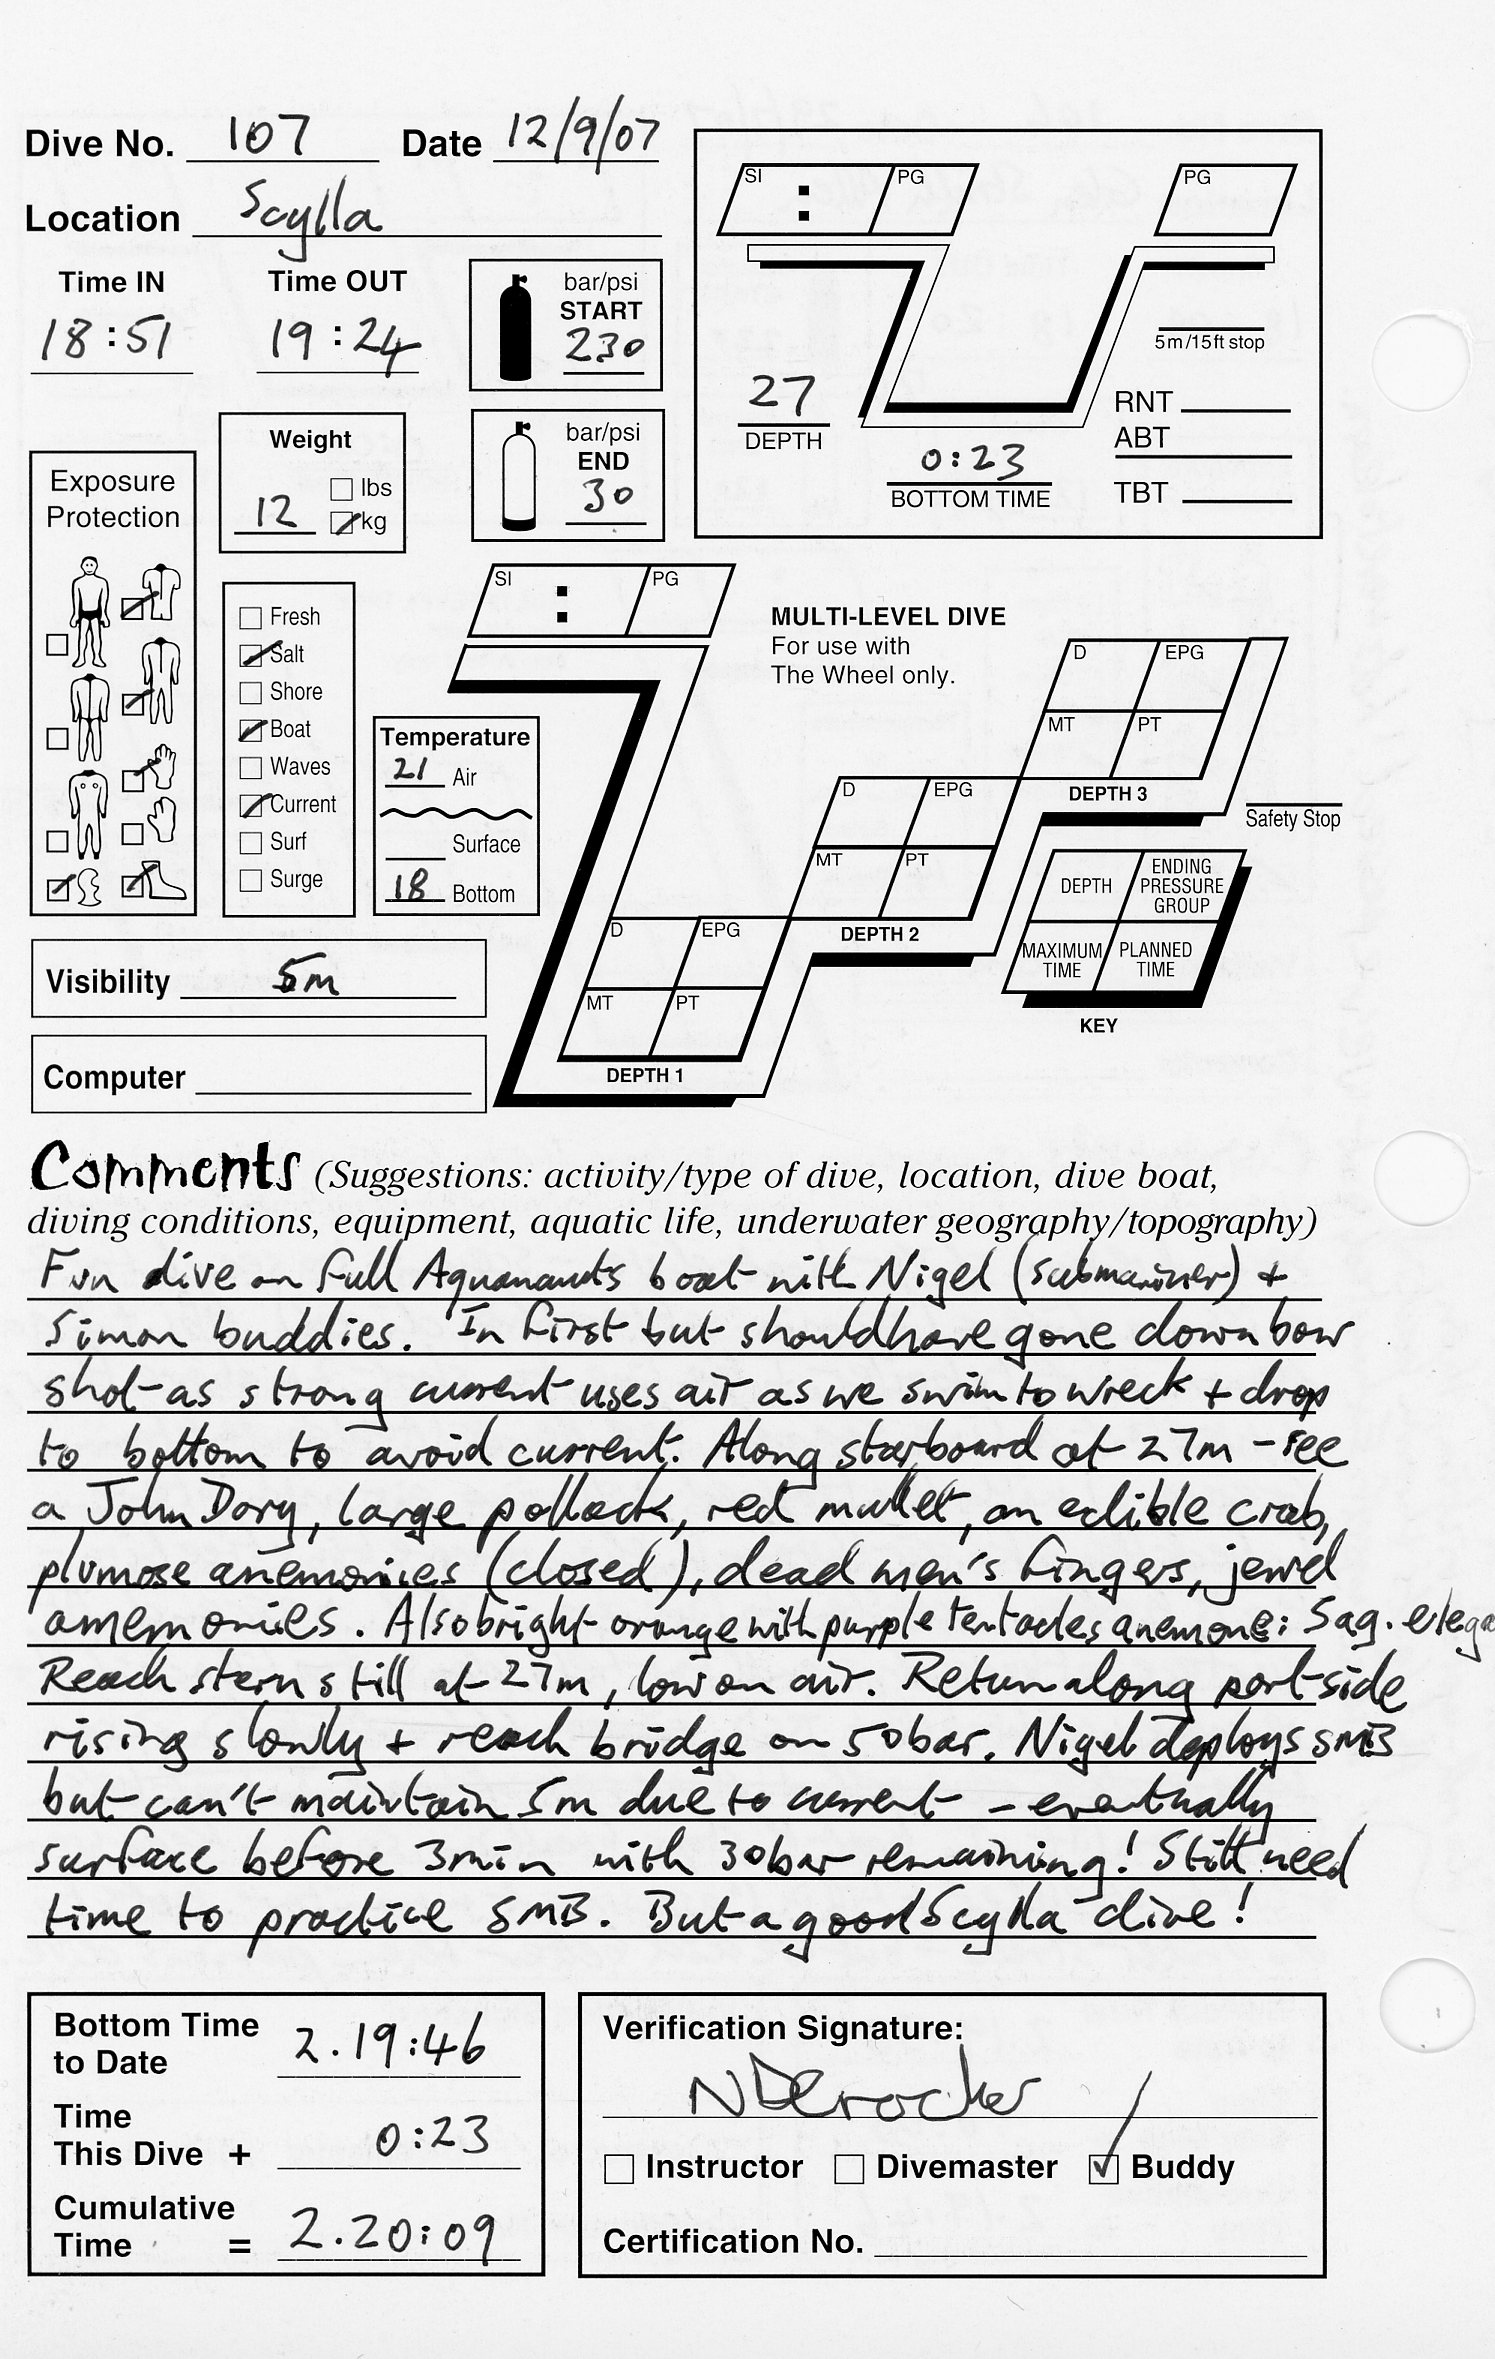 Dive No. 107 Date 12/9/07
Location Scylla
Time IN Time OUT
18:51 19:24
bar/psi
START
230
bar/psi
END
30
Weight
lbs
12 kg
Exposure
Protection
Fresh
Salt
Shore
Boat
Waves
Current
Surf
Surge
Temperature
21 Air
Surface
18 Bottom
Visibility 5m
Computer
SI : PG PG
5m/15ft stop
27
DEPTH
0:23
BOTTOM TIME
RNT
ABT
TBT
SI : PG
MULTI-LEVEL DIVE
For use with
The Wheel only.
D EPG
MT PT
DEPTH 3
D EPG
MT PT
DEPTH 2
D EPG
MT PT
DEPTH 1
Safety Stop
DEPTH ENDING
PRESSURE
GROUP
MAXIMUM PLANNED
TIME TIME
KEY
Comments (Suggestions: activity/type of dive, location, dive boat,
diving conditions, equipment, aquatic life, underwater geography/topography)
Fun dive on full Aquanauts boat with Nigel (submariner) +
Simon buddies. In first but should have gone down bow
shot as strong current uses air as we swim to wreck + drop
to bottom to avoid current. Along starboard at 27m - see
a John Dory, large pollack, red mullet, an edible crab,
plumose anemonies (closed), dead men's fingers, jewel
anemonies. Also bright orange with purple tentacles anemone: Sag. elega
Reach stern still at 27m, low on air. Return along port side
rising slowly + reach bridge on 50bar. Nigel deploys SMB
but can't maintain 5m due to current - eventually
surface before 3min with 30bar remaining! Still need
time to practice SMB. But a good Scylla dive!
Bottom Time
to Date 2.19:46
Time
This Dive + 0:23
Cumulative
Time = 2.20:09
Verification Signature:
Instructor Divemaster Buddy
Certification No.